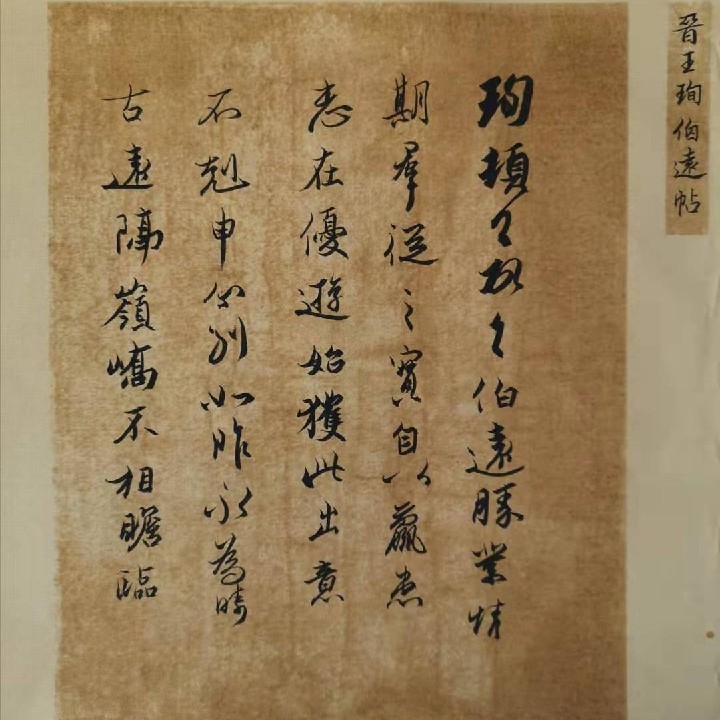 晉王珣伯遠帖
珣頓々極々伯遠勝業情
期羣從之寳自以羸患
志在優遊始獲此出意
不剋申分别如昨永為疇
古遠隔嶺嶠不相瞻臨